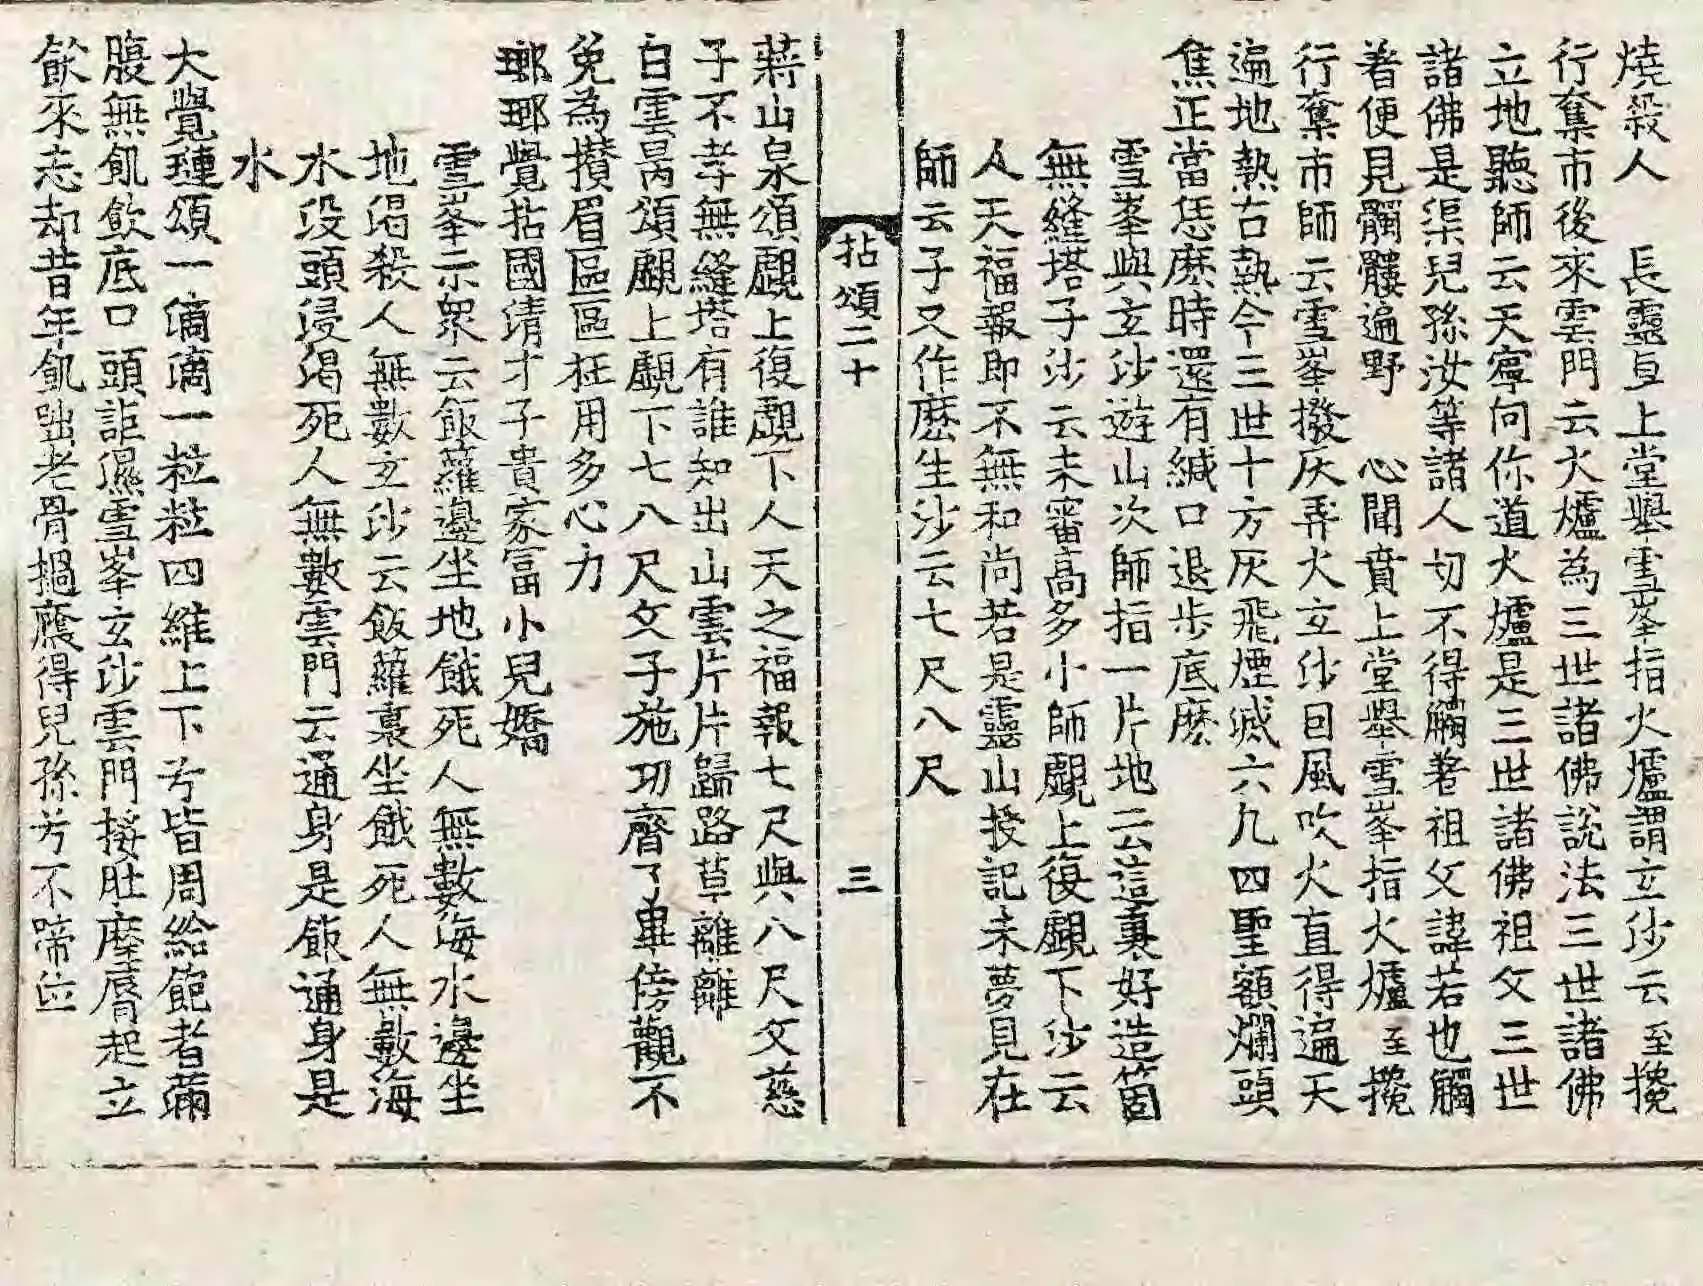 燒殺人　長靈卓上堂舉雪峯指火爐謂玄沙云至攙
行奪市後來雲門云火爐為三世諸佛說法三世諸佛
立地聽師云天寧向你道火爐是三世諸佛祖父三世
諸佛是渠兒孫汝等諸人切不得觸著祖父諱若也觸
著便見髑髏遍野　心聞賁上堂舉雪峯指火爐至攙
行奪市師云雪峯撥灰弄火玄沙因風吹火直得遍天
遍地熱古熱今三世十方灰飛煙滅六凡四聖額爛頭
焦正當恁麽時還有緘口退步底麽
雪峯與玄沙遊山次師指一片地云這裏好造箇
無縫塔子沙云未審高多小師覰上復覰下沙云
人天福報即不無和尚若是靈山授記未夢見在
師云子又作麽生沙云七尺八尺
拈頌二十　三
蔣山泉頌覰上復覰下人天之福報七尺與八尺父慈
子不孝無縫塔有誰知出山雲片片歸路草離離
白雲昺頌覰上覰下七八尺父子施功齊了畢傍觀不
免為攢眉區區枉用多心力
瑯瑘覺拈國清才子貴家富小兒嬌
雪峯示眾云飯蘿邊坐地餓死人無數海水邊坐
地渴殺人無數玄沙云飯蘿裏坐餓死人無數海
水沒頭浸渴死人無數雲門云通身是飯通身是
水
大覺璉頌一滴滴一粒粒四維上下兮皆周給飽者蒲
腹無飢飲底口頭詎濕雪峯玄沙雲門接肚摩脣起立
飲來忘却昔年飢咄老骨撾癈得兒孫兮不啼泣